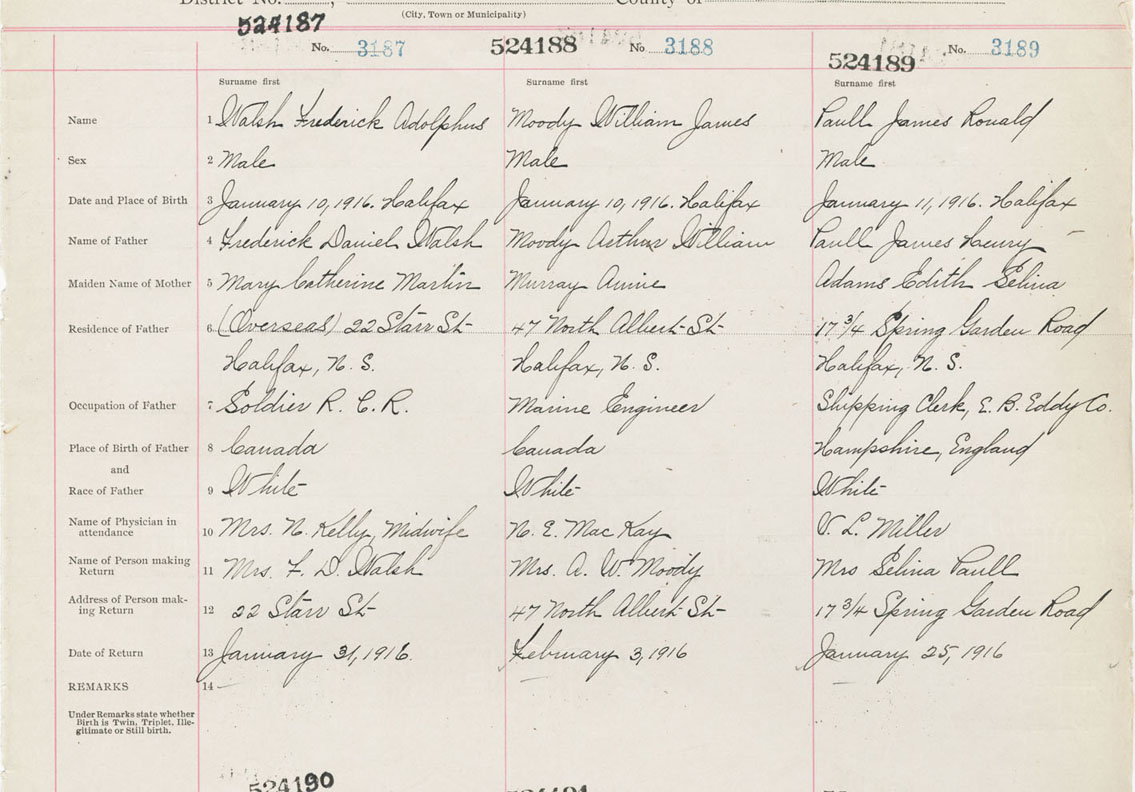 District No. , County of
(City, Town or Municipality)
524187
No. 3187
524188 No 3188
524189
No. 3189
Surname first Surname first Surname first
Name 1 Walsh Frederick Adolphus Moody William James Paull James Ronald
Sex 2 Male Male Male
Date and Place of Birth 3 January 10, 1916. Halifax January 10, 1916. Halifax January 11, 1916. Halifax
Name of Father 4 Frederick Daniel Walsh Moody Arthur William Paull James Henry
Maiden Name of Mother 5 Mary Catherine Martin Murray Annie Adams Edith Selina
Residence of Father 6 (Overseas) 22 Starr St 47 North Albert St 17 3/4 Spring Garden Road
Halifax, N. S. Halifax, N. S. Halifax, N. S.
Occupation of Father 7 Soldier R. C. R. Marine Engineer Shipping Clerk, E. B. Eddy Co.
Place of Birth of Father 8 Canada Canada Hampshire, England
and
Race of Father 9 White White White
Name of Physician in attendance 10 Mrs. N. Kelly, Midwife N. E. MacKay V. L. Miller
Name of Person making Return 11 Mrs. F. D. Walsh Mrs. A. W. Moody Mrs Selina Paull
Address of Person making Return 12 22 Starr St 47 North Albert St 17 3/4 Spring Garden Road
Date of Return 13 January 31, 1916. February 3, 1916 January 25, 1916
REMARKS 14 —
Under Remarks state whether
Birth is Twin, Triplet, Ille-
gitimate or Still birth.
524190